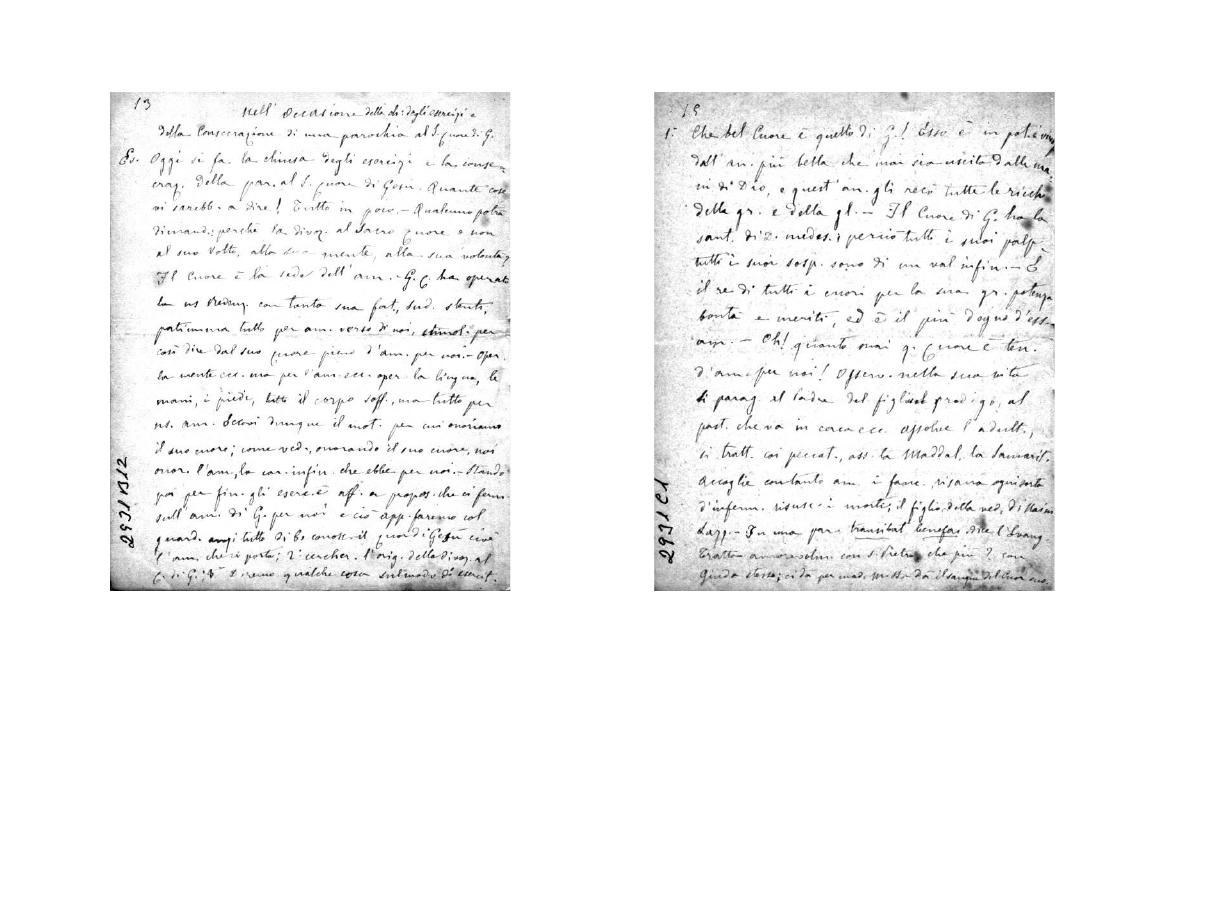 13
Nell' Occasione della ch: degli esercizi e
della Consecrazione di una parochia al S. Cuore di G.
Es. Oggi si fa la chiusa degli esercizi e la conse-
craz. della par. al S. Cuore di Gesù. Quante cose
vi sarebb. a dire! Tutto in poco. - Qualcuno potrà
dimand.: perchè la divoz. al Sacro Cuore e non
al suo Volto, alla sua mente, alla sua volontà?
Il Cuore è la sede dell' am. - G. C. ha operato
la ns Redenz. con tanta sua fat., sud. stenti,
patim. ma tutto per am. verso di noi, stimol. per
così dire dal suo Cuore pieno d'am. per noi. - Oper.
la mente ecc. ma per l'am. ecc. oper. la lingua, le
mani, i piedi, tutto il corpo soff., ma tutto per
ns. am. Eccovi dunque il mot. per cui onoriamo
il suo cuore; come ved., onorando il suo cuore, noi
onor. l'am., la car. infin. che ebbe per noi. - Stando
poi per fin. gli eserc. è aff. a propos. che ci ferm.
sull' am. di G. per noi e ciò app. faremo col
guard. anzi tutto di be conosc. il Cuor di Gesù cioè
l'am. che ci porta; 2° cercher. l'orig. della divoz. al
C. di G.: 3° Diremo qualche cosa sul modo di esercit.
2931 B12
15
1°. Che bel Cuore è quello di G.! Esso è in
dall' an. più bella che mai sia uscita dalle ma-
ni di Dio, e quest' an. gli recò tutte le ricch.
della gr. e della gl. - Il Cuore di G. ha la
sant. di D. medes.; perciò tutti i suoi palp.
tutti i suoi sosp. sono di un val. infin. - È
il re di tutti i cuori per la sua gr. potenza
bontà e meriti, ed è il più degno d'ess.
am. - Oh! quanto mai q. Cuore è ten.
d'am. per noi! Osserv. nella sua vita
Si parag. al Padre del figliuol prodigo, al
past. che va in cerca ecc. Assolve l'adult.,
si tratt. coi peccat., ass. la Maddal. la Samarit.
Accoglie con tanto am. i fanc. risana ogni sorta
d'inferm. risusc. i morti; il figlio della ved. di Naim
Lazz. - In una par. transibat benefac. dice l'Evang.
Tratto amorevolm. con S. Pietro, che più? con
Giuda stesso; ci dà per mad. M. SS. dà il sangue del Cuor suo.
2931 C1